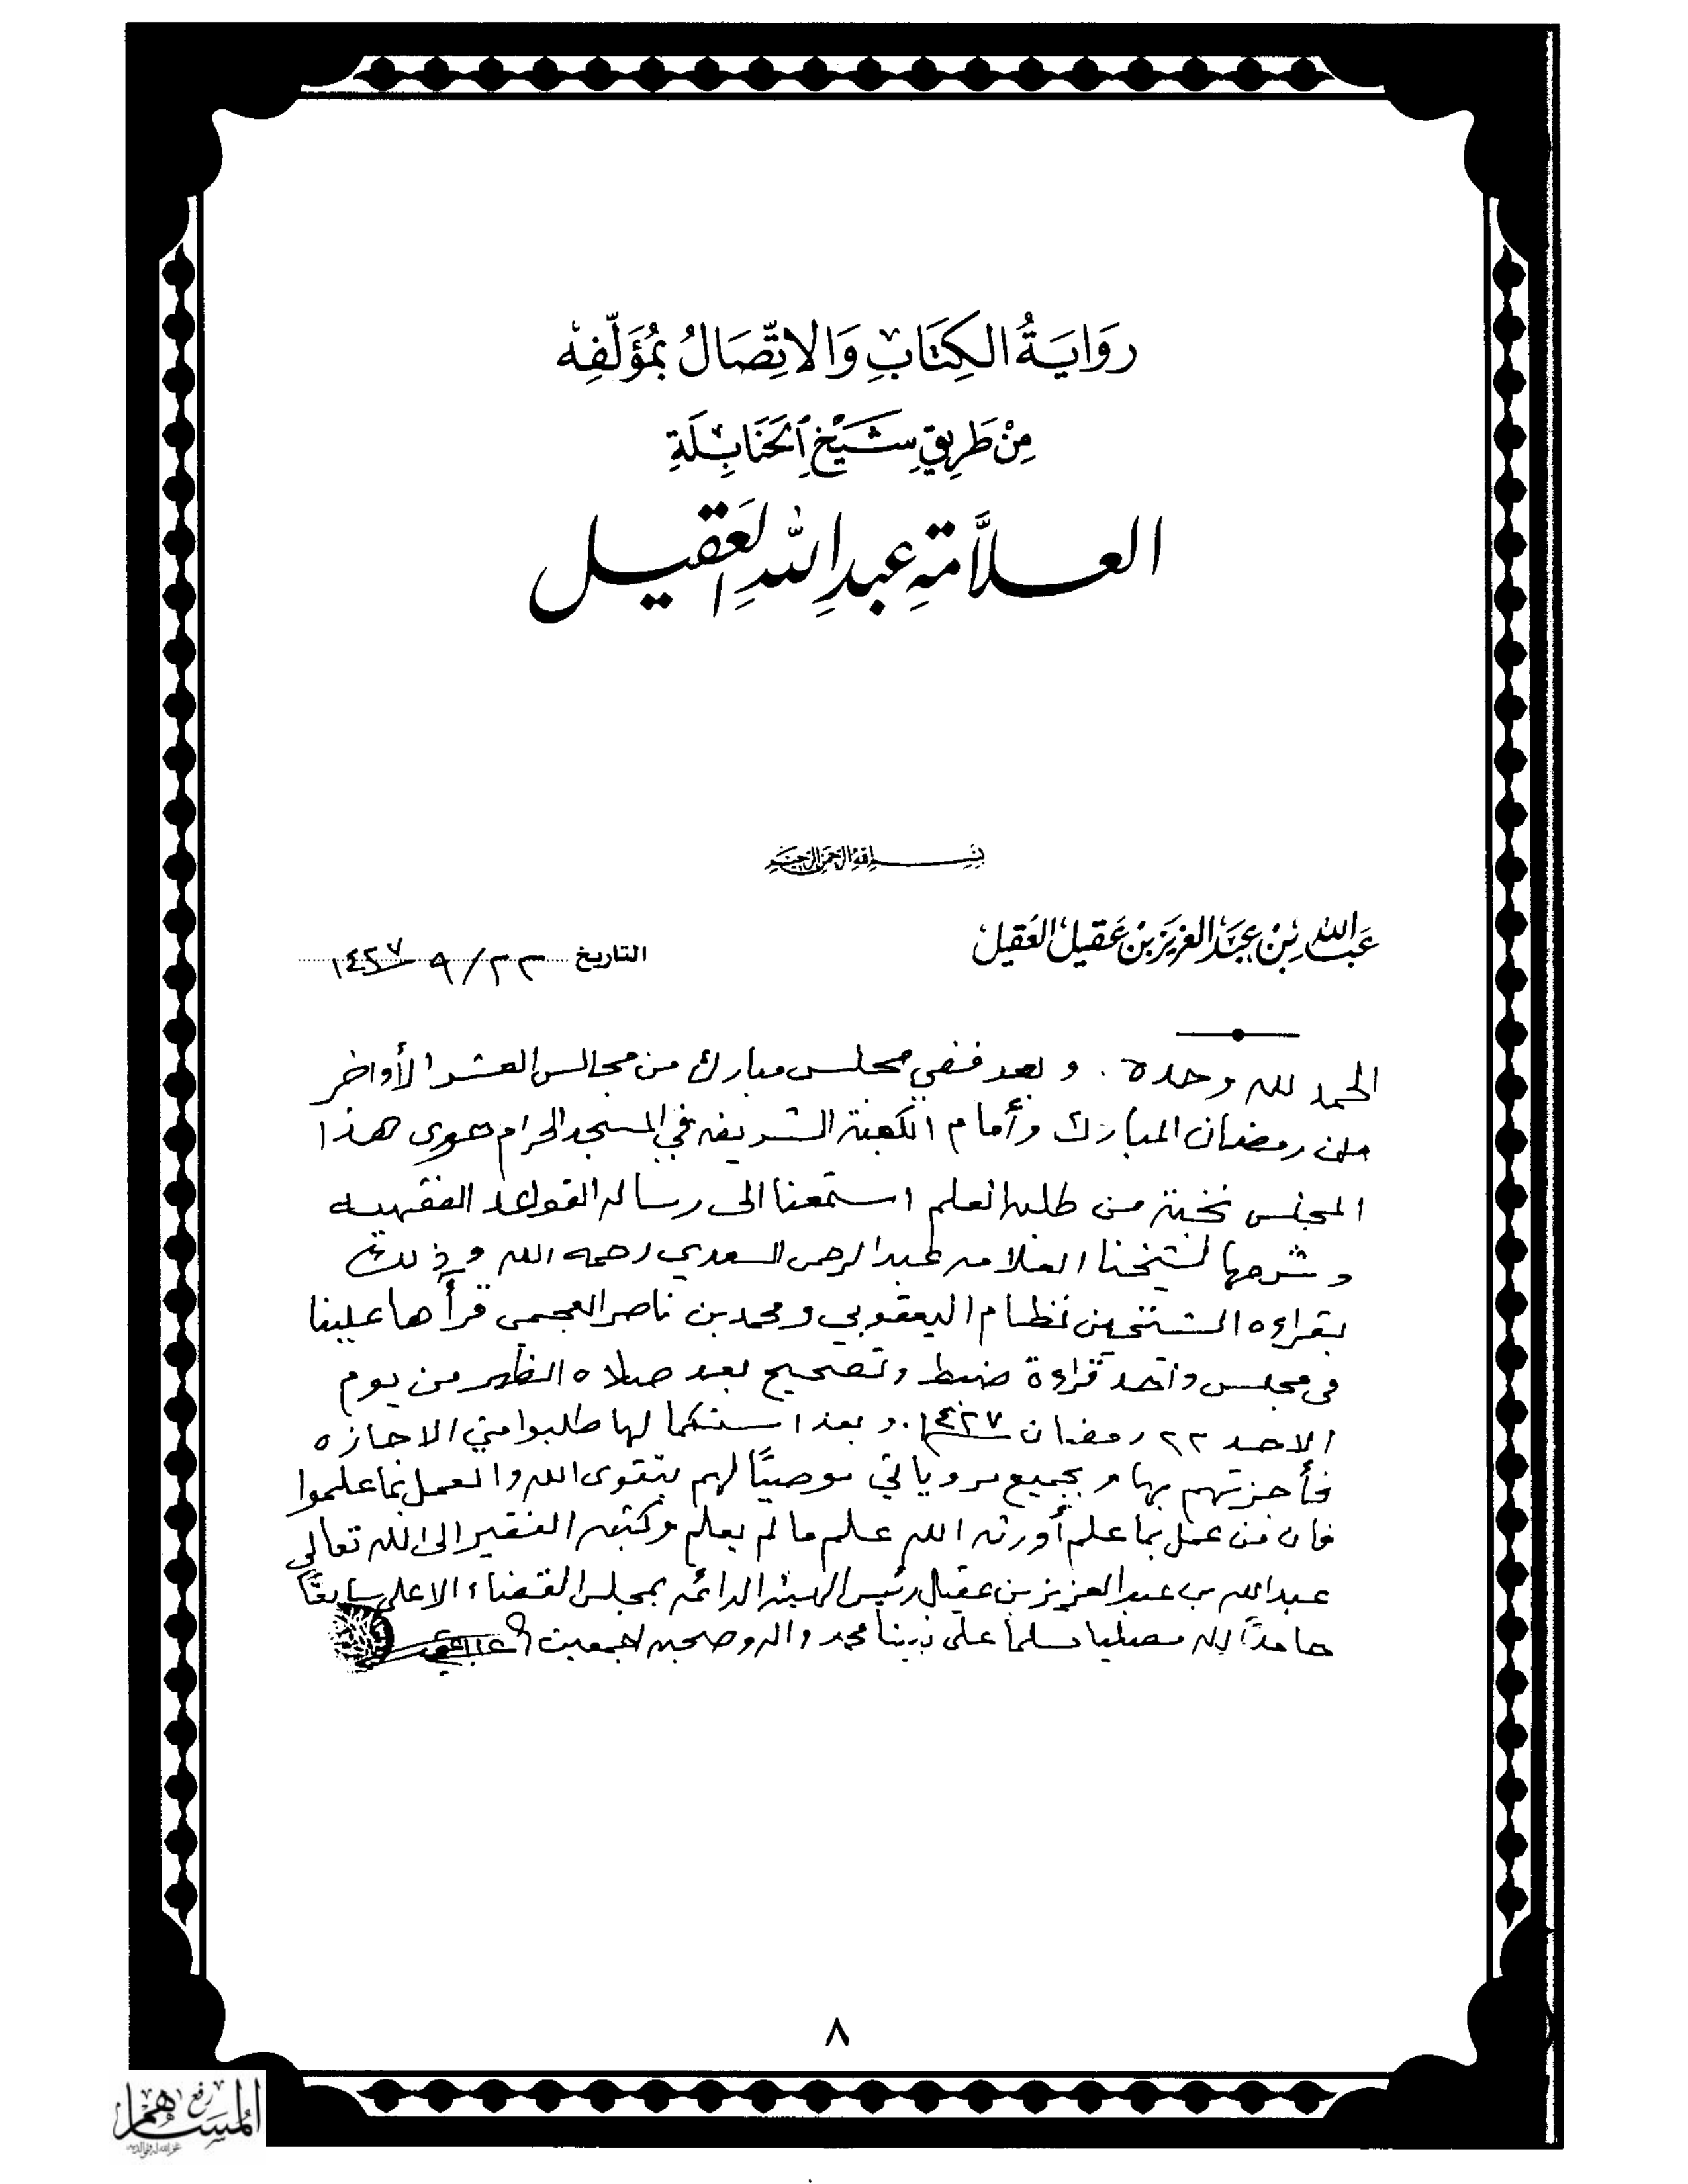 رِوَايَةُ الكِتَابِ وَالاتِّصَالُ بِمُؤَلِّفِهِ
مِنْ طَرِيقِ شَيْخِ الحَنَابِلَةِ
العلَّامَةِ عبدِ اللهِ العَقيل
بِسْمِ اللهِ الرَّحْمَنِ الرَّحِيمِ
عَبدُ الله بْن عَبدِ العَزيز بن عَقيل العَقيل
التاريخ ٢٢/ ٩ ١٤٢٧
الحمد لله وحده . وبعد ففي مجلس مبارك من مجالس العشر الأواخر
من رمضان المبارك وأمام الكعبة الشريفة في المسجد الحرام حوى هذا
المجلس نخبة من طلبة العلم استمعنا الى رسالة القواعد الفقهيه
وشرحها لشيخنا العلامه عبد الرحمن السعدي رحمه الله وذلك
بقراءه الشيخين نظام اليعقوبي ومحمد بن ناصر العجمي قرأها علينا
في مجلس واحد قراءة ضبط وتصحيح بعد صلاه الظهر من يوم
الاحد ٢٢ رمضان ١٤٢٧ . وبعد استكمالها طلبوا مني الاجازه
فأجزتهم بها وبجميع مروياتي موصيًا لهم بتقوى الله والعمل بما علموا
فان من عمل بما علم أورثه الله علم ما لم يعلم وكتبه الفقير الى الله تعالى
عبد الله بن عبد العزيز بن عقيل رئيس الهيئه الدائمه بمجلس القضاء الاعلى سابقًا
حامدًا لله مصليا مسلما على نبينا محمد واله وصحبه اجمعين
٨
المساهم
رفع
غفر الله له ولوالديه